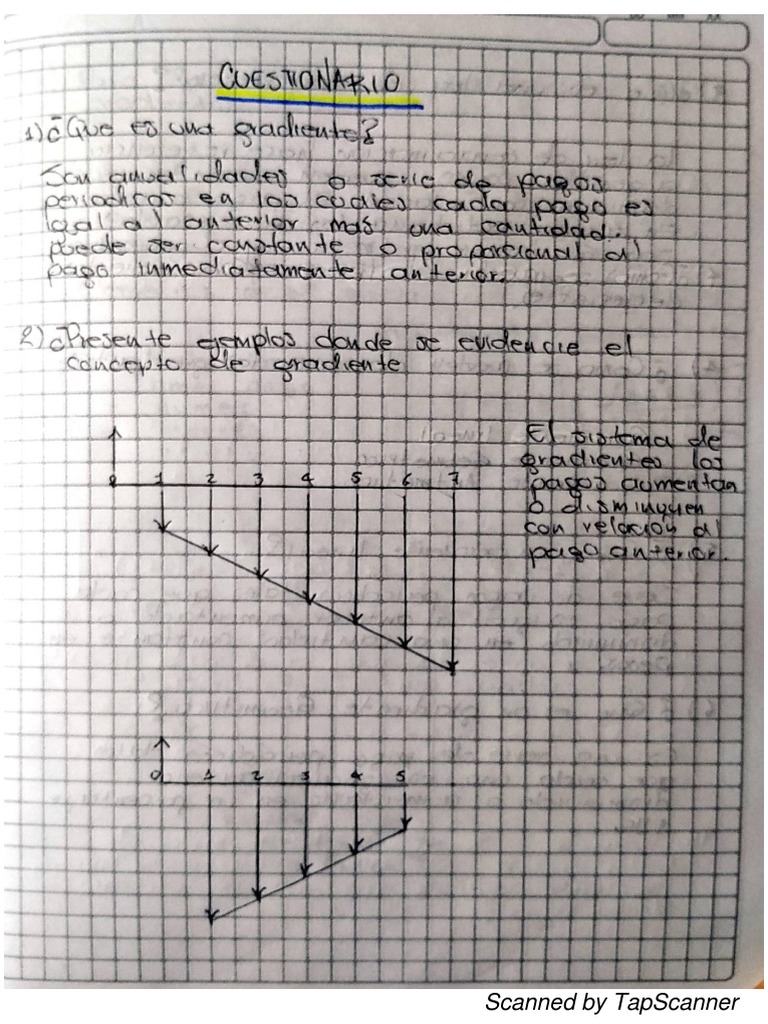 CUESTIONARIO
1) ¿Que es una gradiente?
Son anualidades o serie de pagos
periodicos en los cuales cada pago es
igal al anterior mas una cantidad.
puede ser constante o proporcional al
pago inmediatamente anterior.
2) ¿Presente ejemplos donde se evidencie el
concepto de gradiente
El sistema de
gradientes los
pagos aumentan
o disminuyen
con relación al
pago anterior.
0 1 2 3 4 5 6 7
0 1 2 3 4 5
Scanned by TapScanner